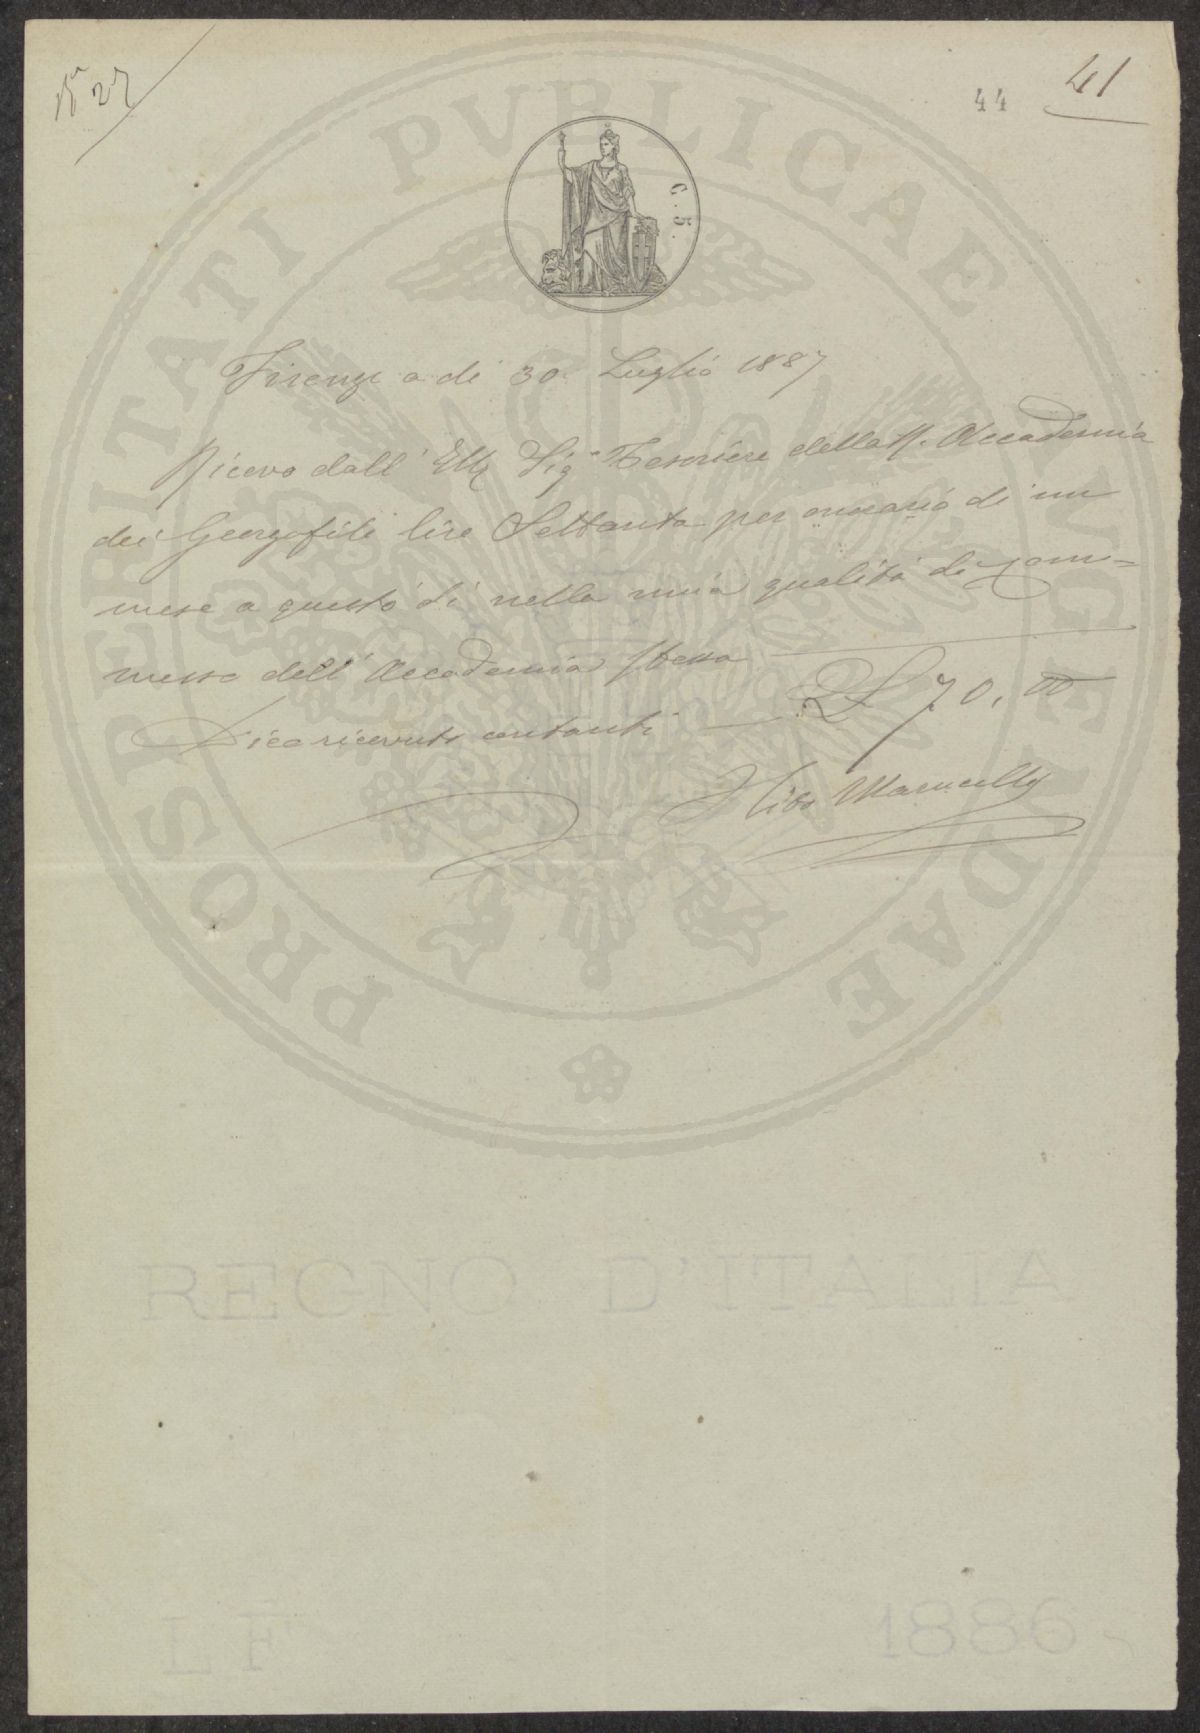 27
41
44
C. 5.
PROSPERITATI PVBLICAE AVGENDAE
Firenze a dì 30 Luglio 1887
Ricevo dall' Sigr Tesoriere della R. Accademia
dei Georgofili lire Settanta per onorario di un
mese a questo dì nella mia qualità di com=
messo dell' Accademia stessa
Dico ricevute contanti £ 70,00
Marucelli
REGNO D'ITALIA
LF 1886